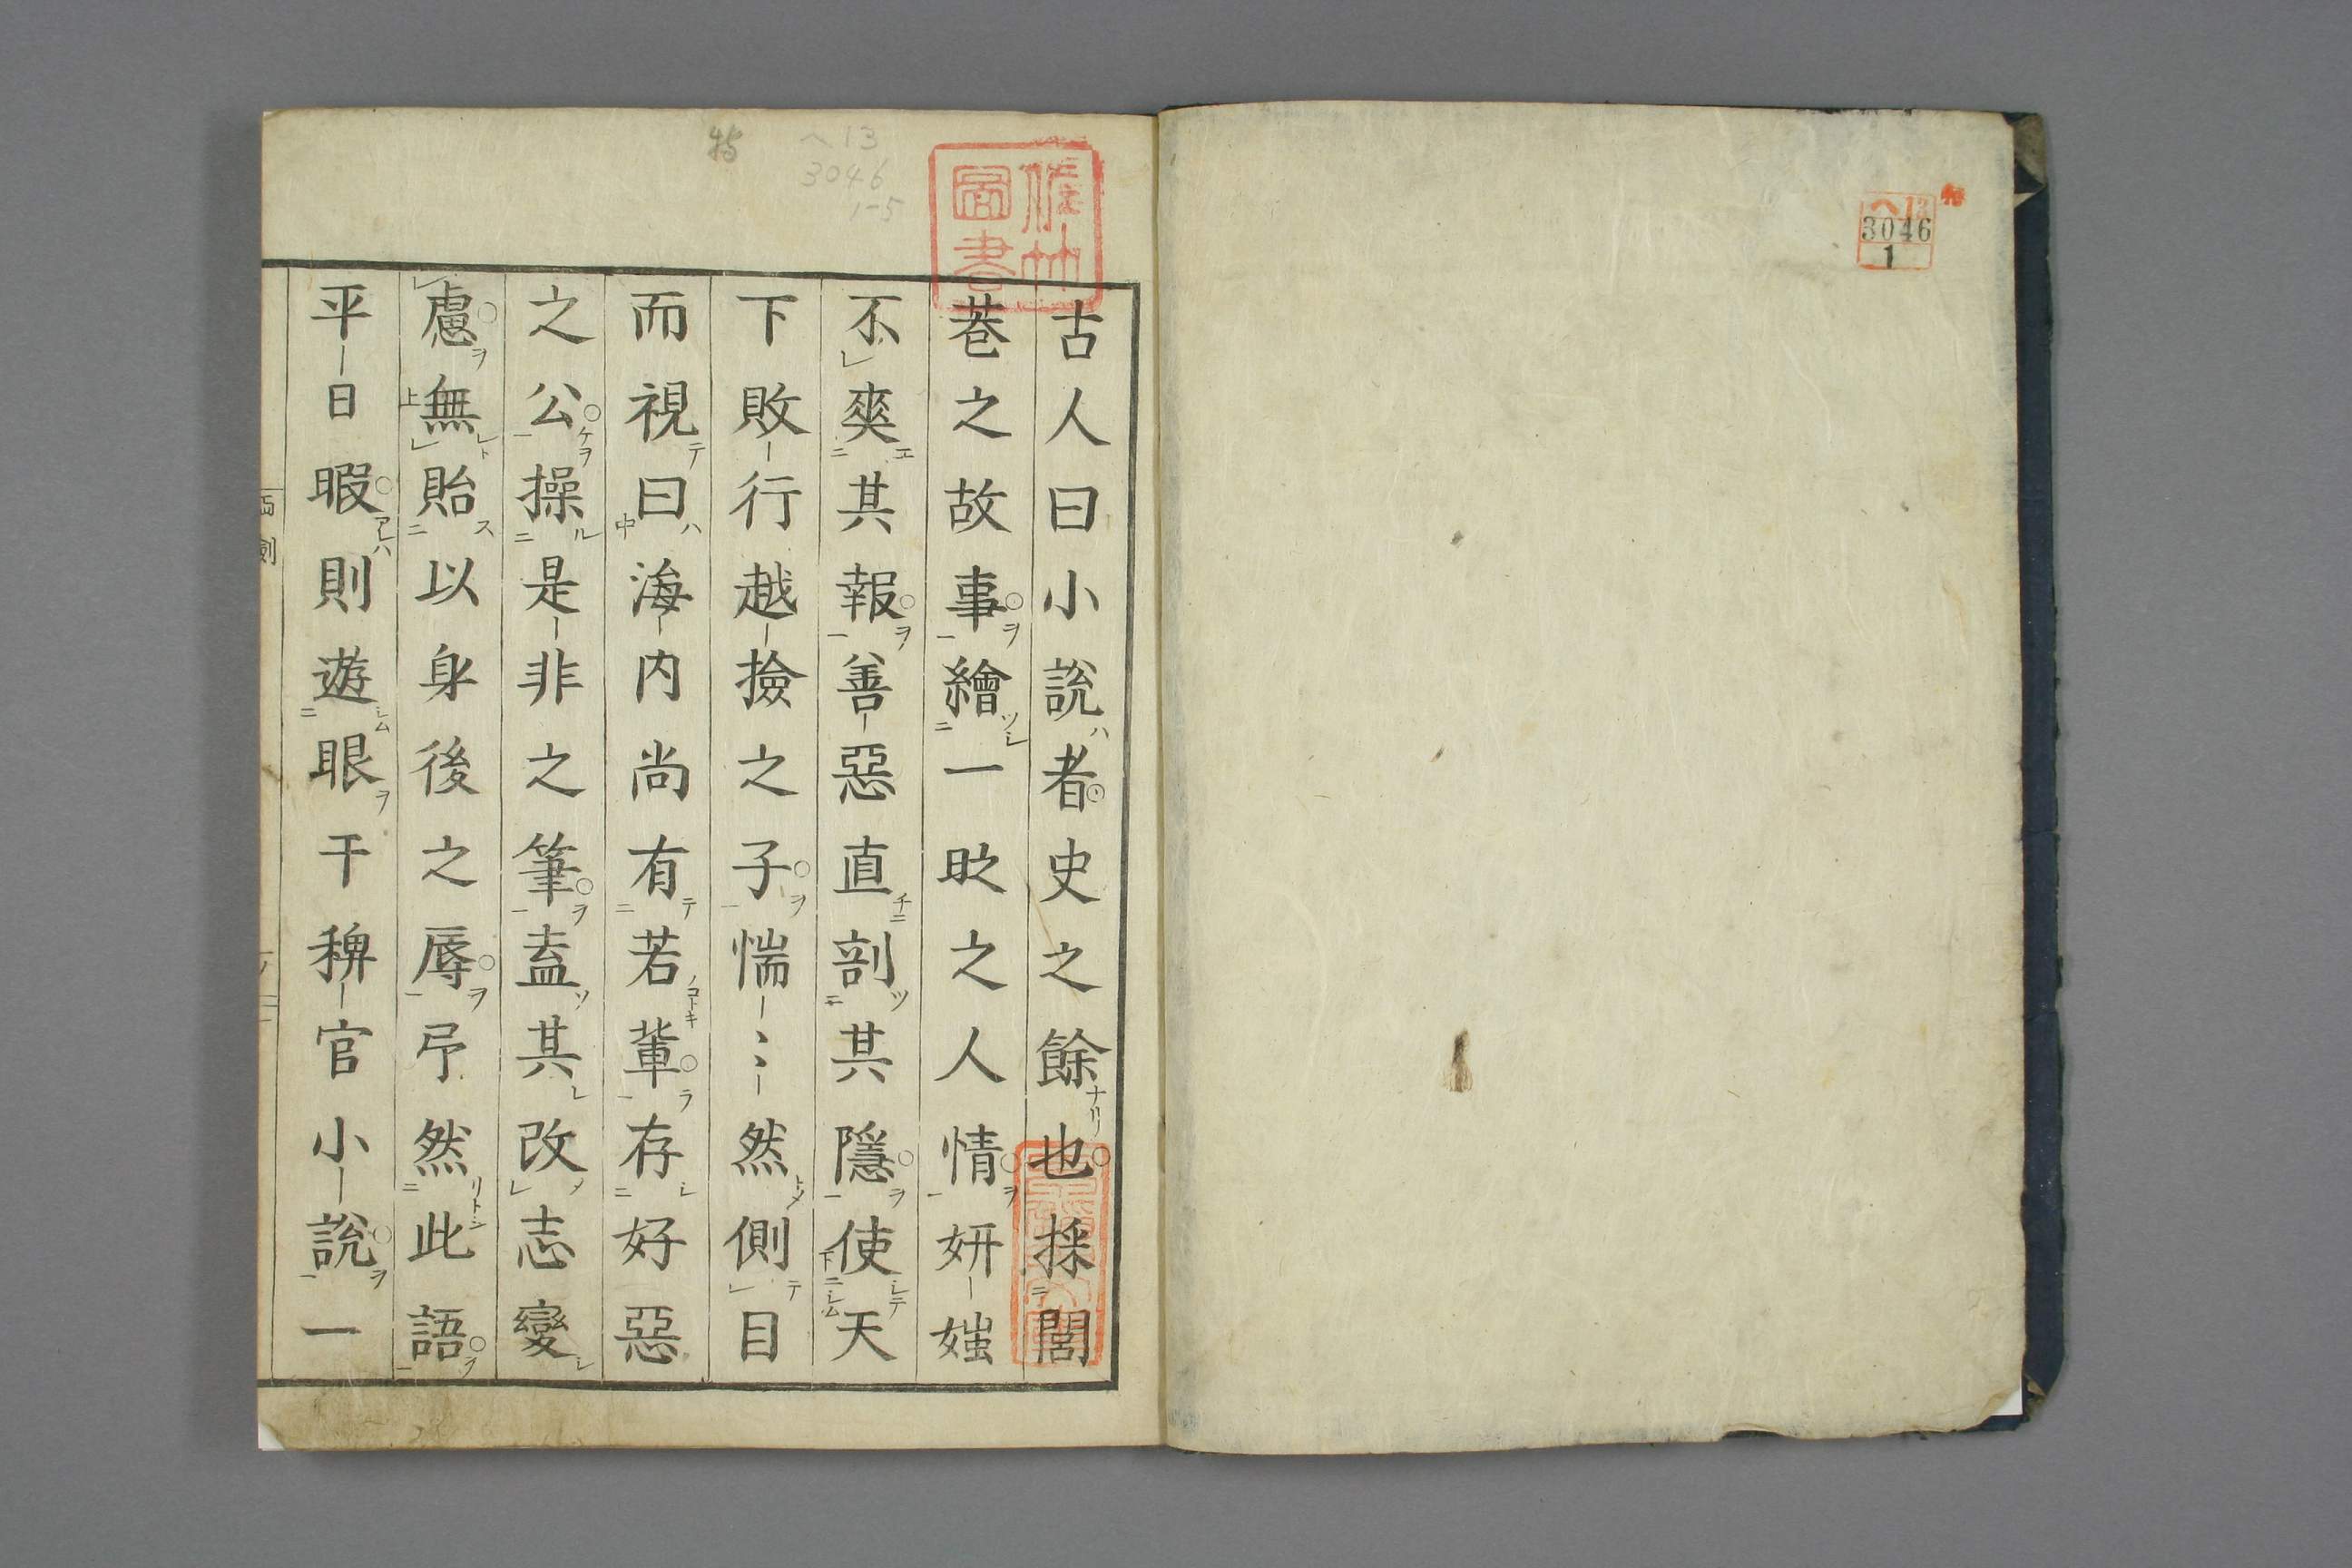 ヘ13
3046
1
特
ヘ13
3046
1-5
圖書
古人曰小説者史之餘也採閭
巷之故事繪一時之人情妍媸
不爽其報善惡直剖其隱使天
下敗行越撿之子惴〻然側目
而視曰海内尚有若輩存好惡
之公操是非之筆盍其改志變
慮無貽以身後之辱予然此語
平日暇則遊眼干稗官小説一
両剣